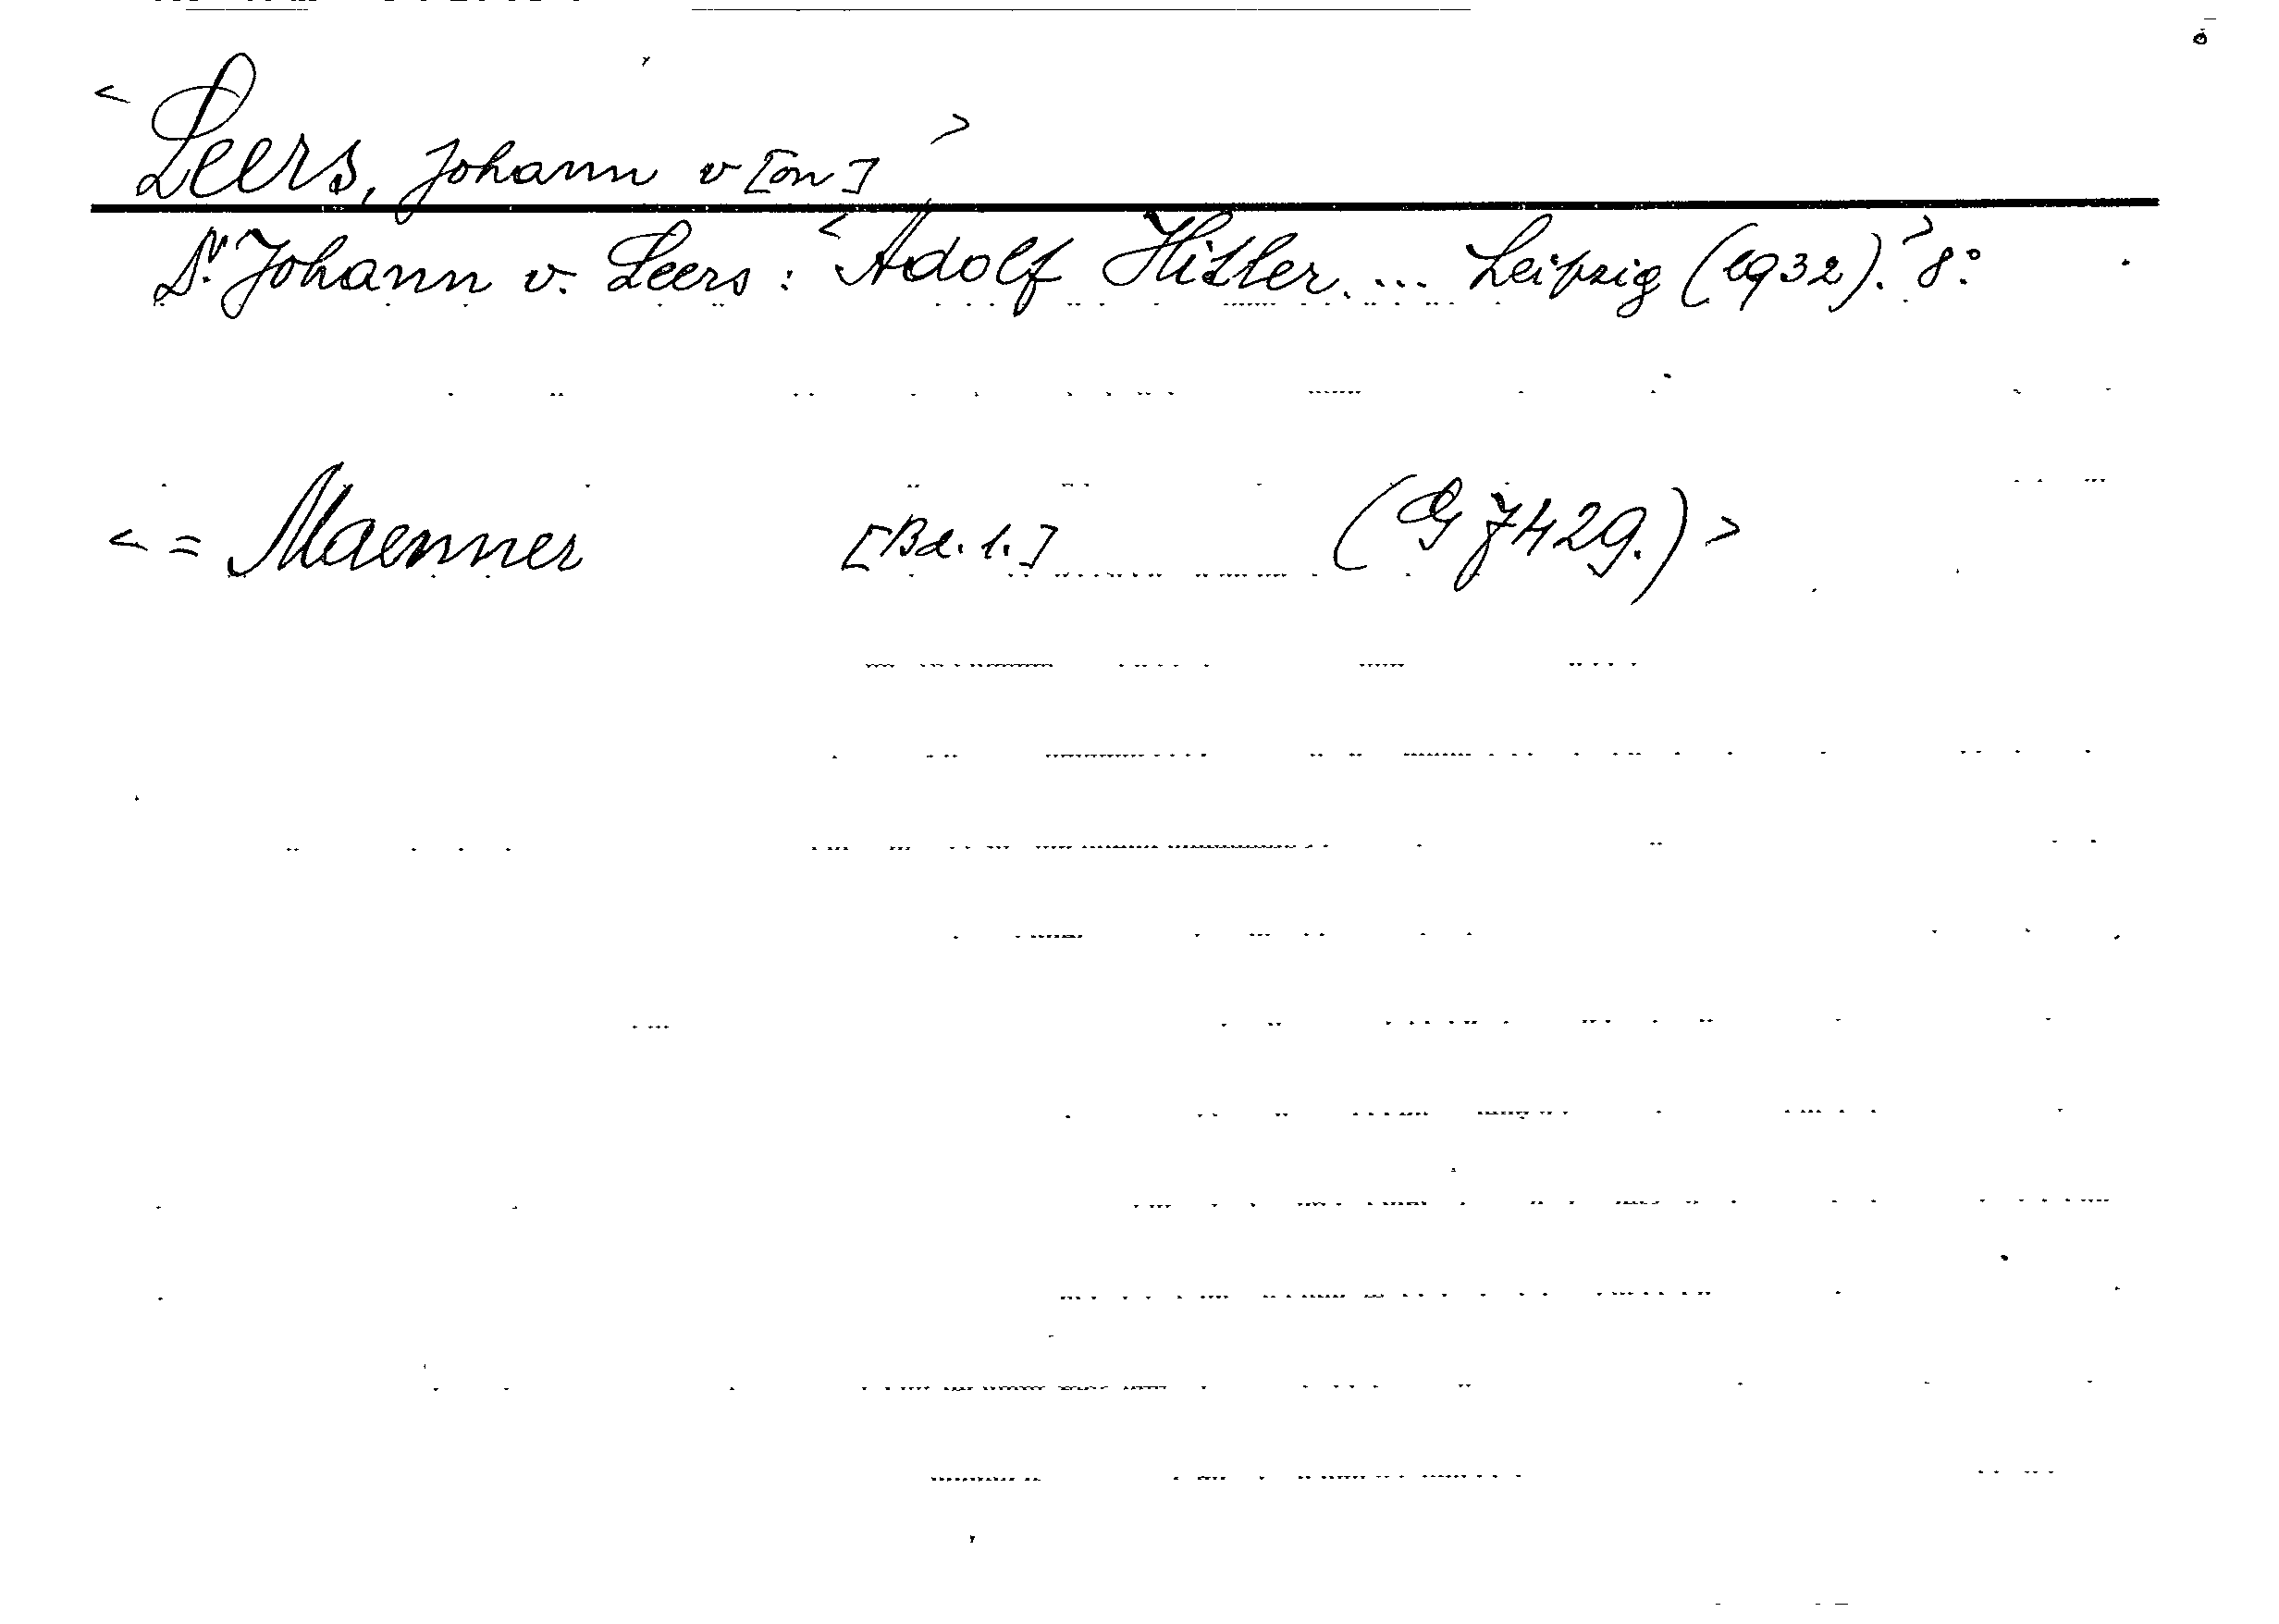 < Leers, Johann v[on] >
Dr. Johann v. Leers: < Adolf Hitler. ... Leipzig (1932). > 8°.
< = Maenner [Bd. 1.] (G 7429.) >